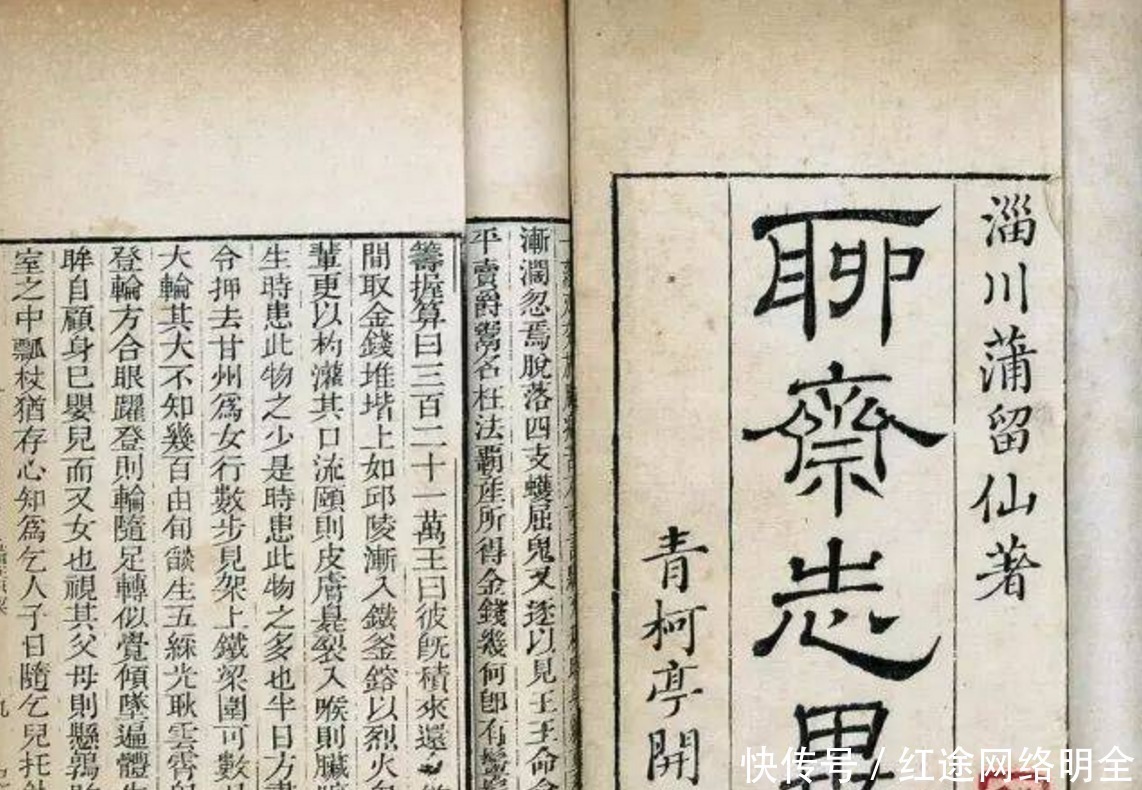 淄川蒲留仙著
聊齋志異
青柯亭開
漸瀾忽焉脫落四支蠖屈鬼又逐以見王王命會
平賣爵鬻名枉法霸產所得金錢幾何卽有鬡
籌握算曰三百二十一萬王曰彼旣積來還
間取金錢堆堦上如邱陵漸入鐵釜鎔以烈火
輩更以杓灌其口流頤則皮膚臭裂入喉則臟
生時患此物之少是時患此物之多也半日方
令押去甘州爲女行數步見架上鐵梁圍可數
大輪其大不知幾百由旬燄生五綵光耿雲霄
登輪方合眼躍登則輪隨足轉似覺傾墜遍體
眸自顧身已嬰兒而又女也視其父母則懸鶉
室之中瓢杖猶存心知爲乞人子日隨乞兒托
快传号/红途网络明全